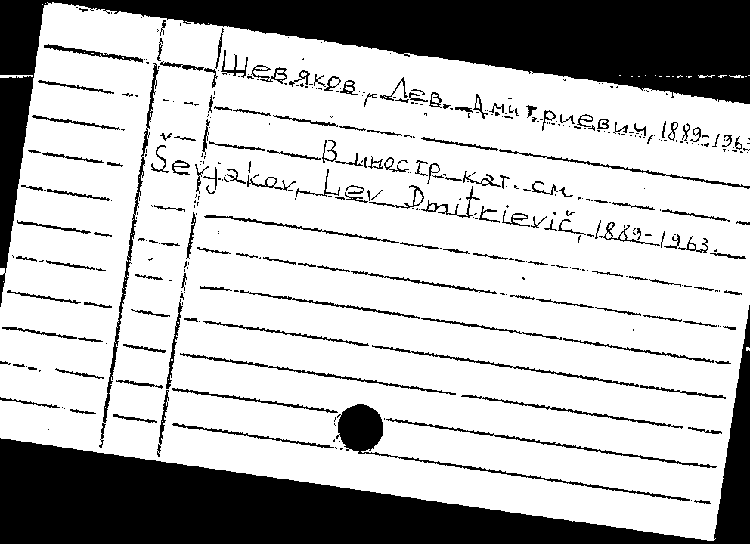 Шевяков, Лев Дмитриевич, 1889-1963
В иностр. кат. см.
Ševjakov, Liev Dmitrievič, 1889-1963.